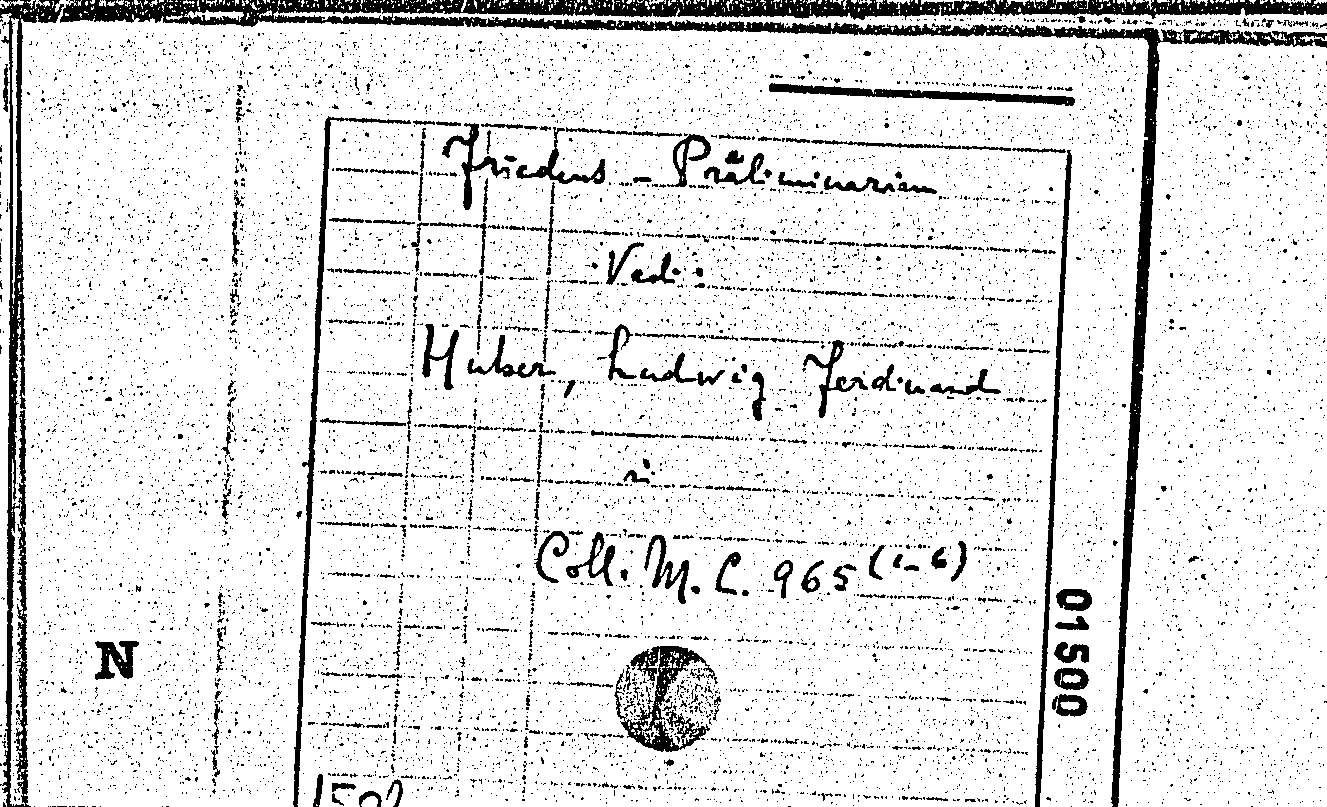 Friedens - Präliminarien
Vedi:
Huber, Ludwig Ferdinand
in
Coll. M. L. 965 (1-6)
01500
N